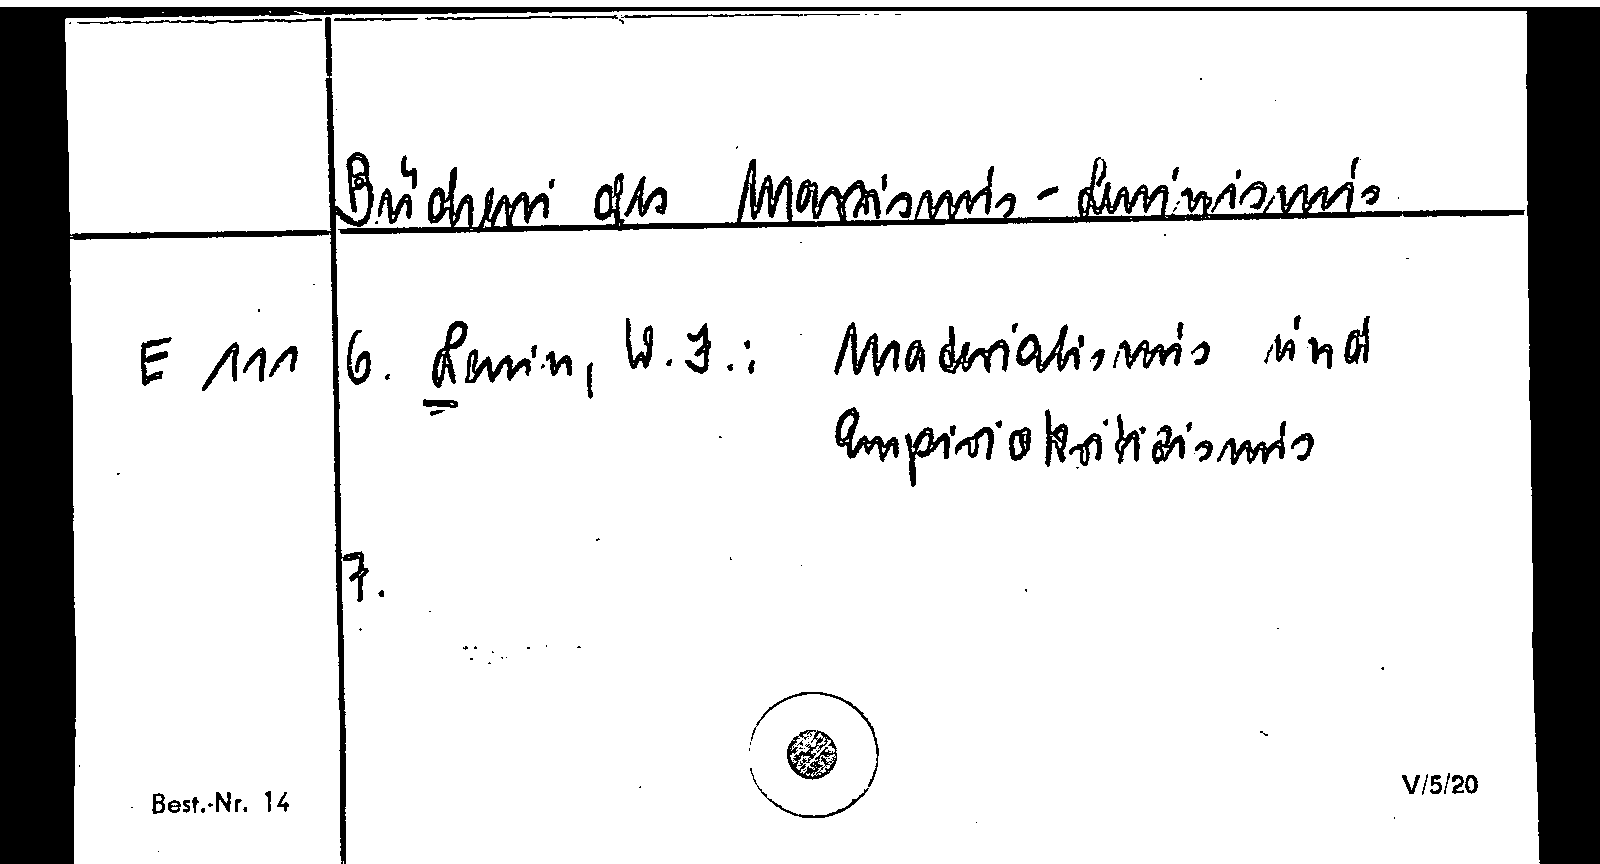 Bücherei des Marxismus-Leninismus
E 111 6. Lenin, W. I.: Materialismus und
Empiriokritizismus
7.
Best.-Nr. 14
V/5/20